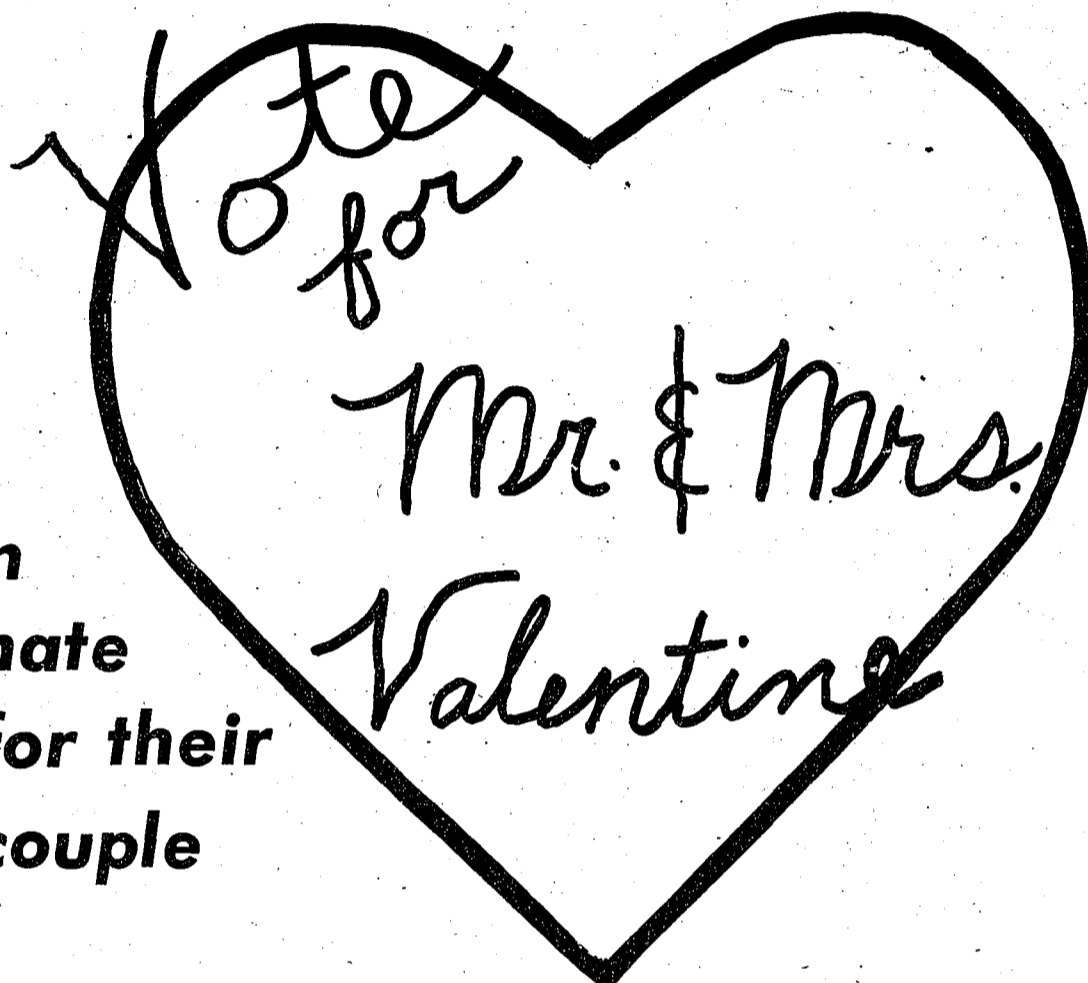 Vote
for
Mr. & Mrs.
Valentine
for their
couple